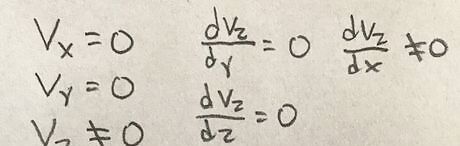 Vx = 0 dVz/dy = 0 dVz/dx ≠ 0
Vy = 0 dVz/dz = 0
Vz ≠ 0